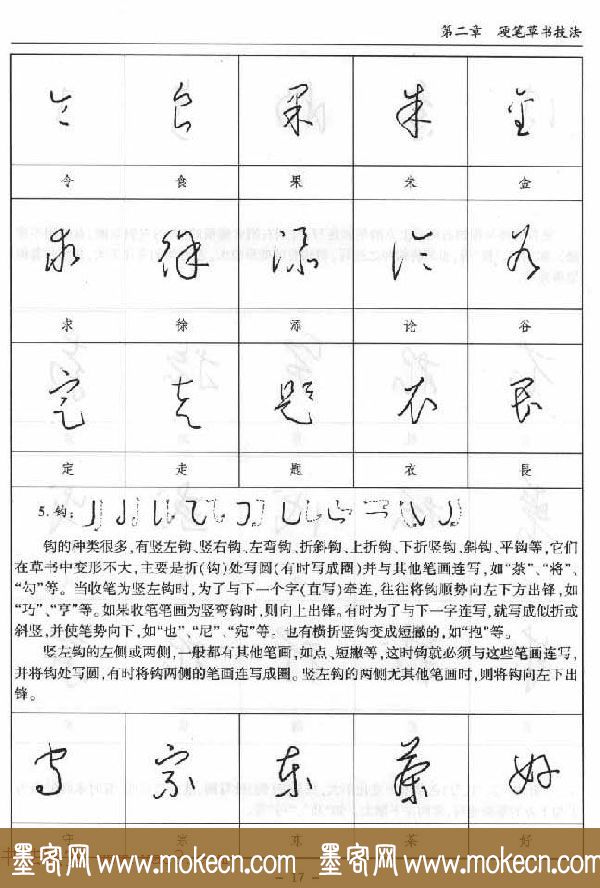 第二章　硬笔草书技法
令 食 果 朱 金
求 徐 添 论 谷
定 走 题 衣 長
5. 钩:
钩的种类很多,有竖左钩、竖右钩、左弯钩、折斜钩、上折钩、下折竖钩、斜钩、平钩等,它们
在草书中变形不大,主要是折(钩)处写圆(有时写成圈)并与其他笔画连写,如“茶”、“将”、
“勾”等。当收笔为竖左钩时,为了与下一个字(直写)牵连,往往将钩顺势向左下方出锋,如
“巧”、“亨”等。如果收笔笔画为竖弯钩时,则向上出锋。有时为了与下一字连写,就写成似折或
斜竖,并使笔势向下,如“也”、“尼”、“宛”等。也有横折竖钩变成短撇的,如“抱”等。
竖左钩的左侧或两侧,一般都有其他笔画,如点、短撇等,这时钩就必须与这些笔画连写,
并将钩处写圆,有时将钩两侧的笔画连写成圈。竖左钩的两侧无其他笔画时,则将钩向左下出
锋。
守 宗 东 茶 好
墨客网 www.mokecn.com 墨客网 www.mokecn.com
- 17 -